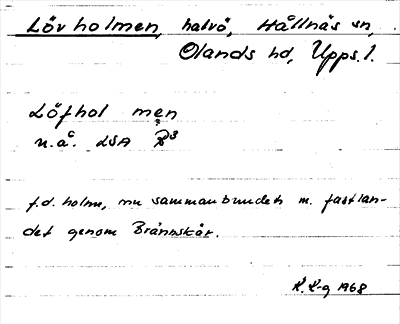 Lövholmen, halvö, Hållnäs sn,
Olands hd, Upps. l.
Löfhol men
u.å. LSA
f.d. holme, nu sammanbunden m. fastlan-
det genom Brännskär.
1968